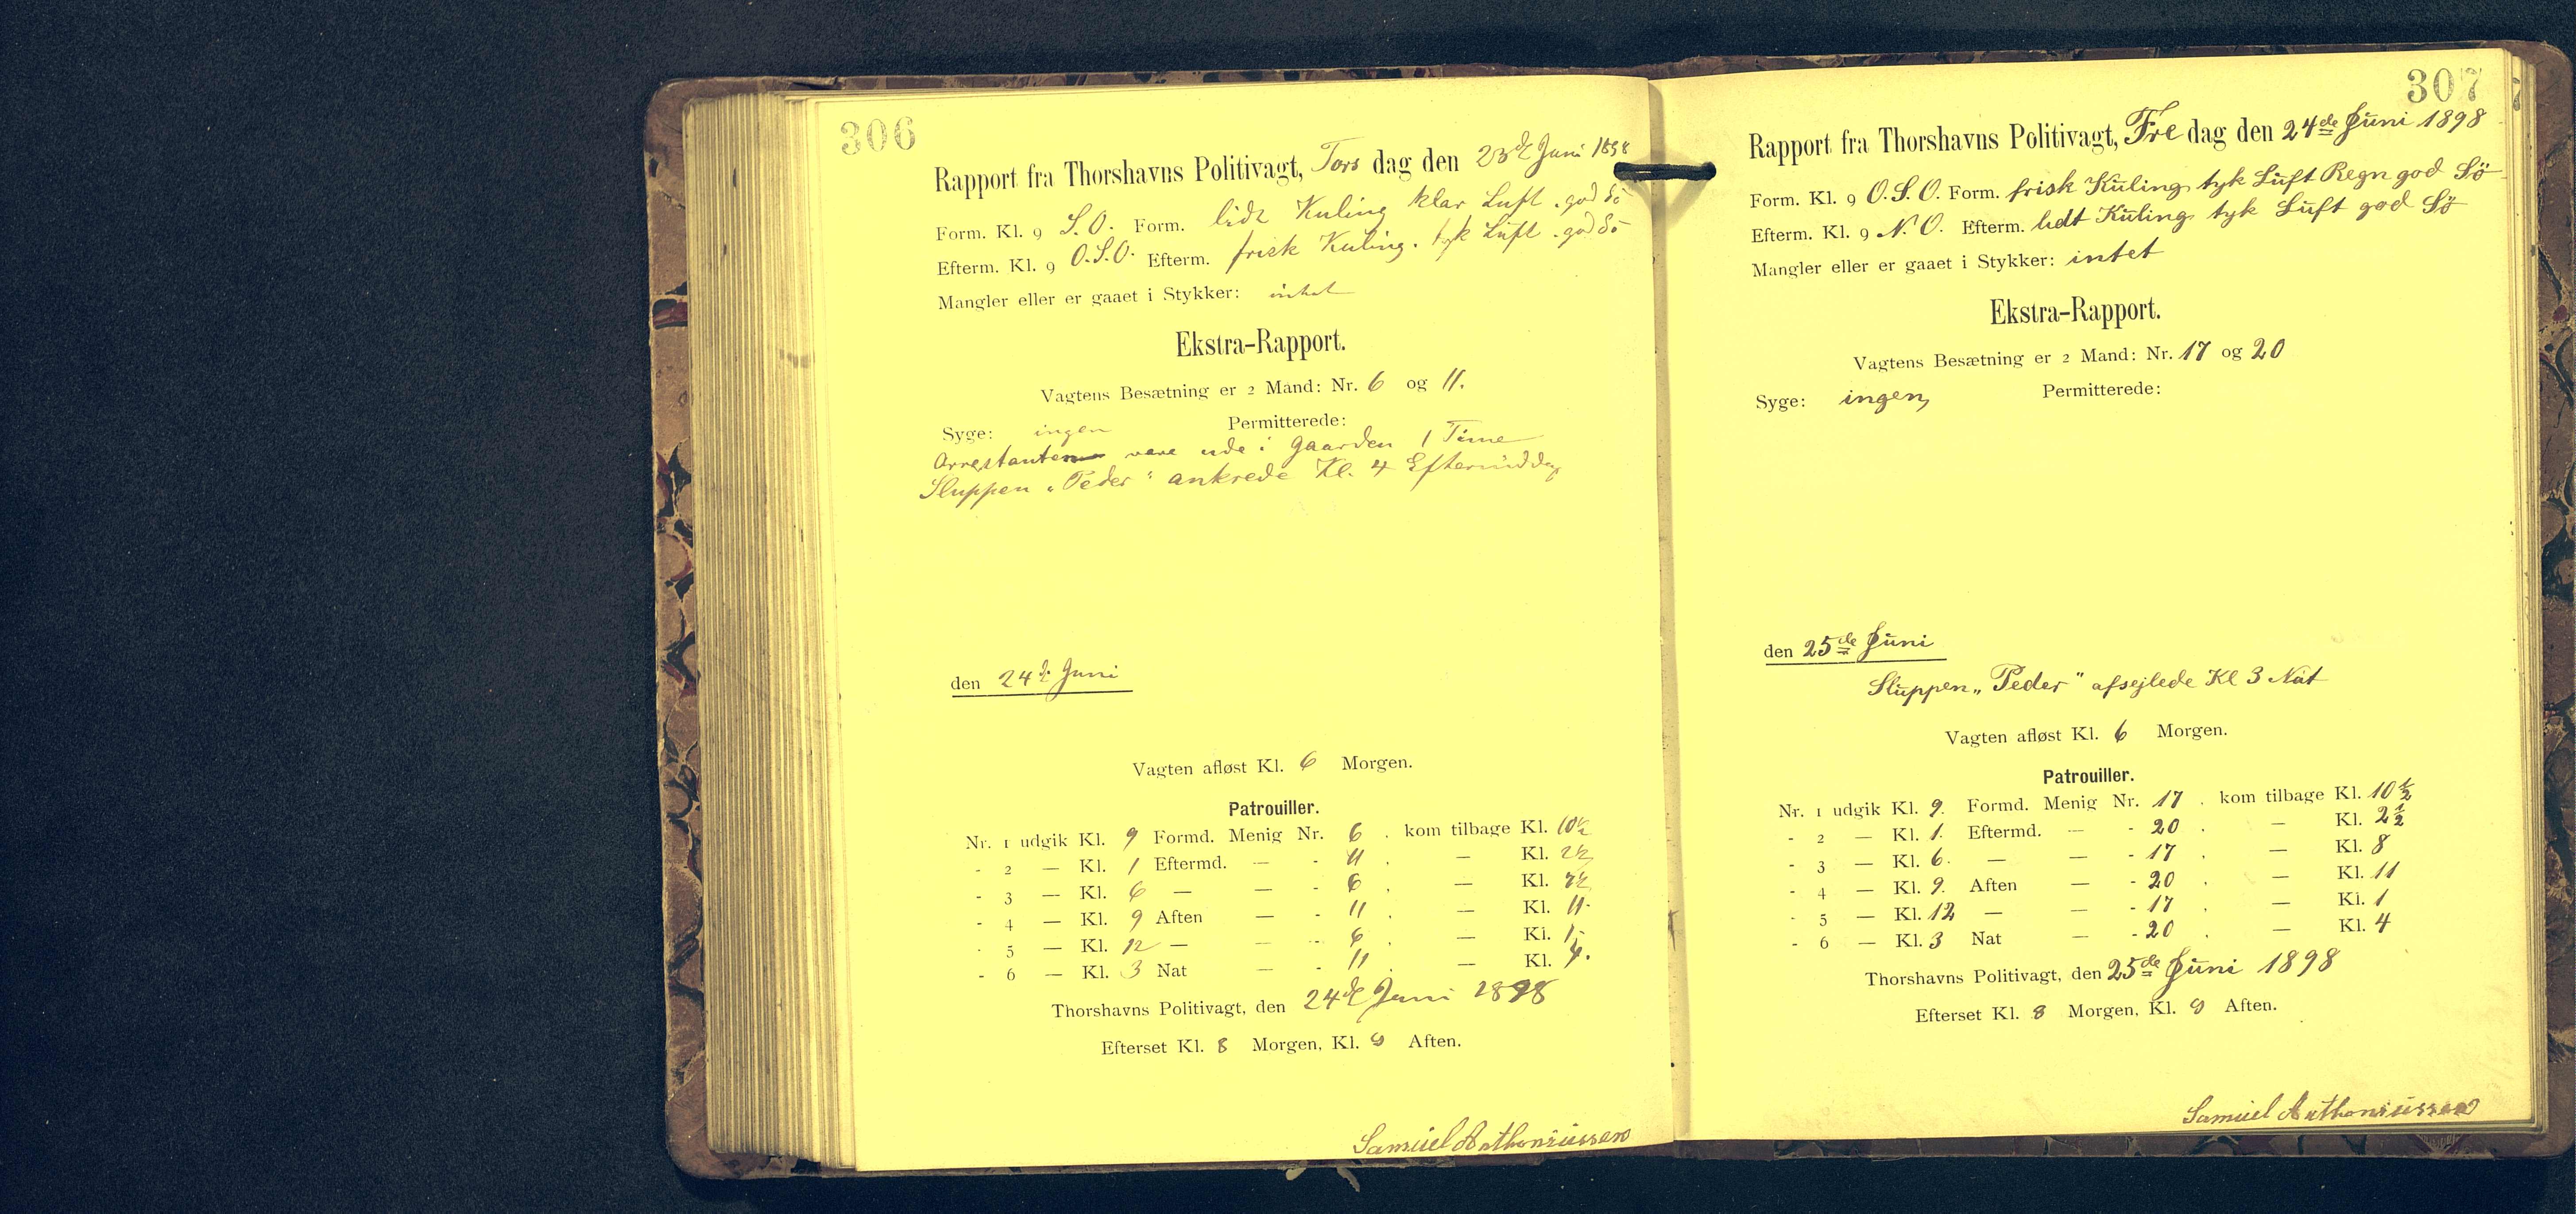 306
Rapport fra Thorshavns Politivagt, Tors dag den 23de Juni 1898
Form. Kl. 9 S.O. Form. lidt Kuling klar Luft. god Sö
Efterm. Kl. 9 O.S.O. Efterm. frisk Kuling. tyk Luft. god Sö
Mangler eller er gaaet i Stykker: intet
Ekstra-Rapport.
Vagtens Besætning er 2 Mand: Nr. 6 og 11.
Syge: ingen Permitterede:
Arrestanten vare ude i Gaarden 1 Time
Sluppen „Peder“ ankrede Kl. 4 Eftermiddag
den 24de Juni
Vagten afløst Kl. 6 Morgen.
Patrouiller.
Nr. 1 udgik Kl. 9 Formd. Menig Nr. 6 . kom tilbage Kl. 10½
- 2 — Kl. 1 Eftermd. — - 11 . — Kl. 2½
- 3 — Kl. 6 — — - 6 . — Kl. 7½
- 4 — Kl. 9 Aften — - 11 . — Kl. 11.
- 5 — Kl. 12 — — - 6 . — Kl. 1.
- 6 — Kl. 3 Nat — - 11 . — Kl. 4.
Thorshavns Politivagt, den 24de Juni 1898
Efterset Kl. 8 Morgen, Kl. 9 Aften.
Samuel Anthoniussen
307
Rapport fra Thorshavns Politivagt, Fre dag den 24de Juni 1898
Form. Kl. 9 O.S.O. Form. frisk Kuling tyk Luft Regn god Sö
Efterm. Kl. 9 N.O. Efterm. lidt Kuling tyk Luft god Sö
Mangler eller er gaaet i Stykker: intet
Ekstra-Rapport.
Vagtens Besætning er 2 Mand: Nr. 17 og 20
Syge: ingen Permitterede:
den 25de Juni
Sluppen „Peder“ afsejlede Kl 3 Nat
Vagten afløst Kl. 6 Morgen.
Patrouiller.
Nr. 1 udgik Kl. 9. Formd. Menig Nr. 17 . kom tilbage Kl. 10½
- 2 — Kl. 1. Eftermd. — - 20 . — Kl. 2½
- 3 — Kl. 6. — — - 17 . — Kl. 8
- 4 — Kl. 9. Aften — - 20 . — Kl. 11
- 5 — Kl. 12 — — - 17 . — Kl. 1
- 6 — Kl. 3 Nat — - 20 . — Kl. 4
Thorshavns Politivagt, den 25de Juni 1898
Efterset Kl. 8 Morgen, Kl. 9 Aften.
Samuel Anthoniussen